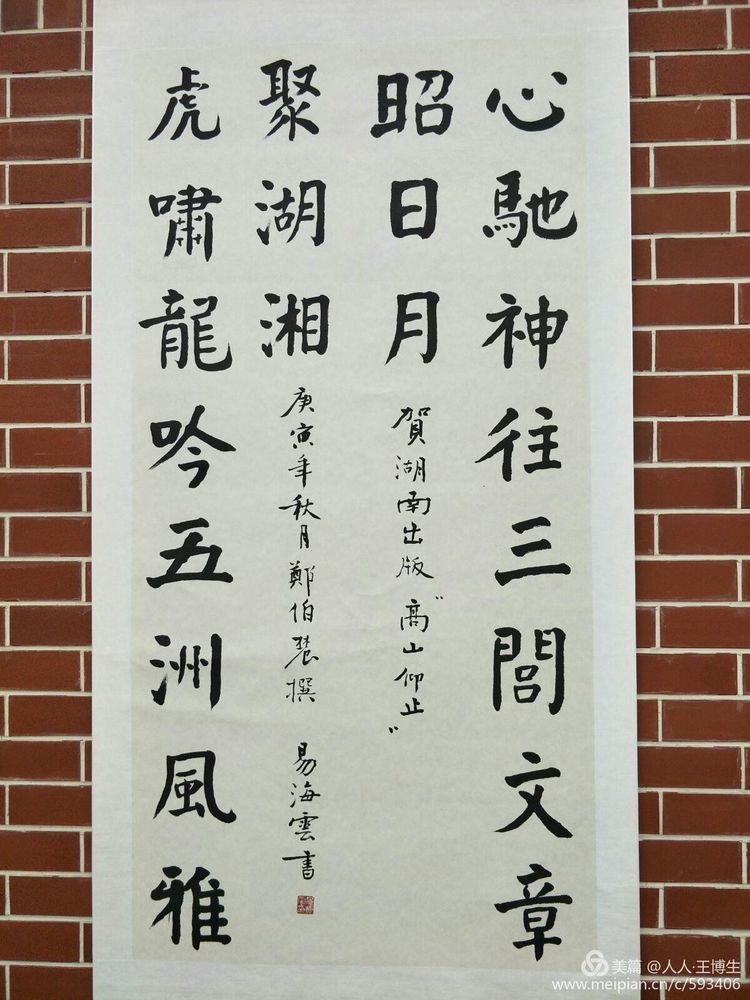 心馳神往三閭文章
昭日月
賀湖南出版“高山仰止”
虎嘯龍吟五洲風雅
聚湖湘
庚寅年秋月鄭伯農撰 易海雲書
美篇 @人人·王博生
www.meipian.cn/c/593406